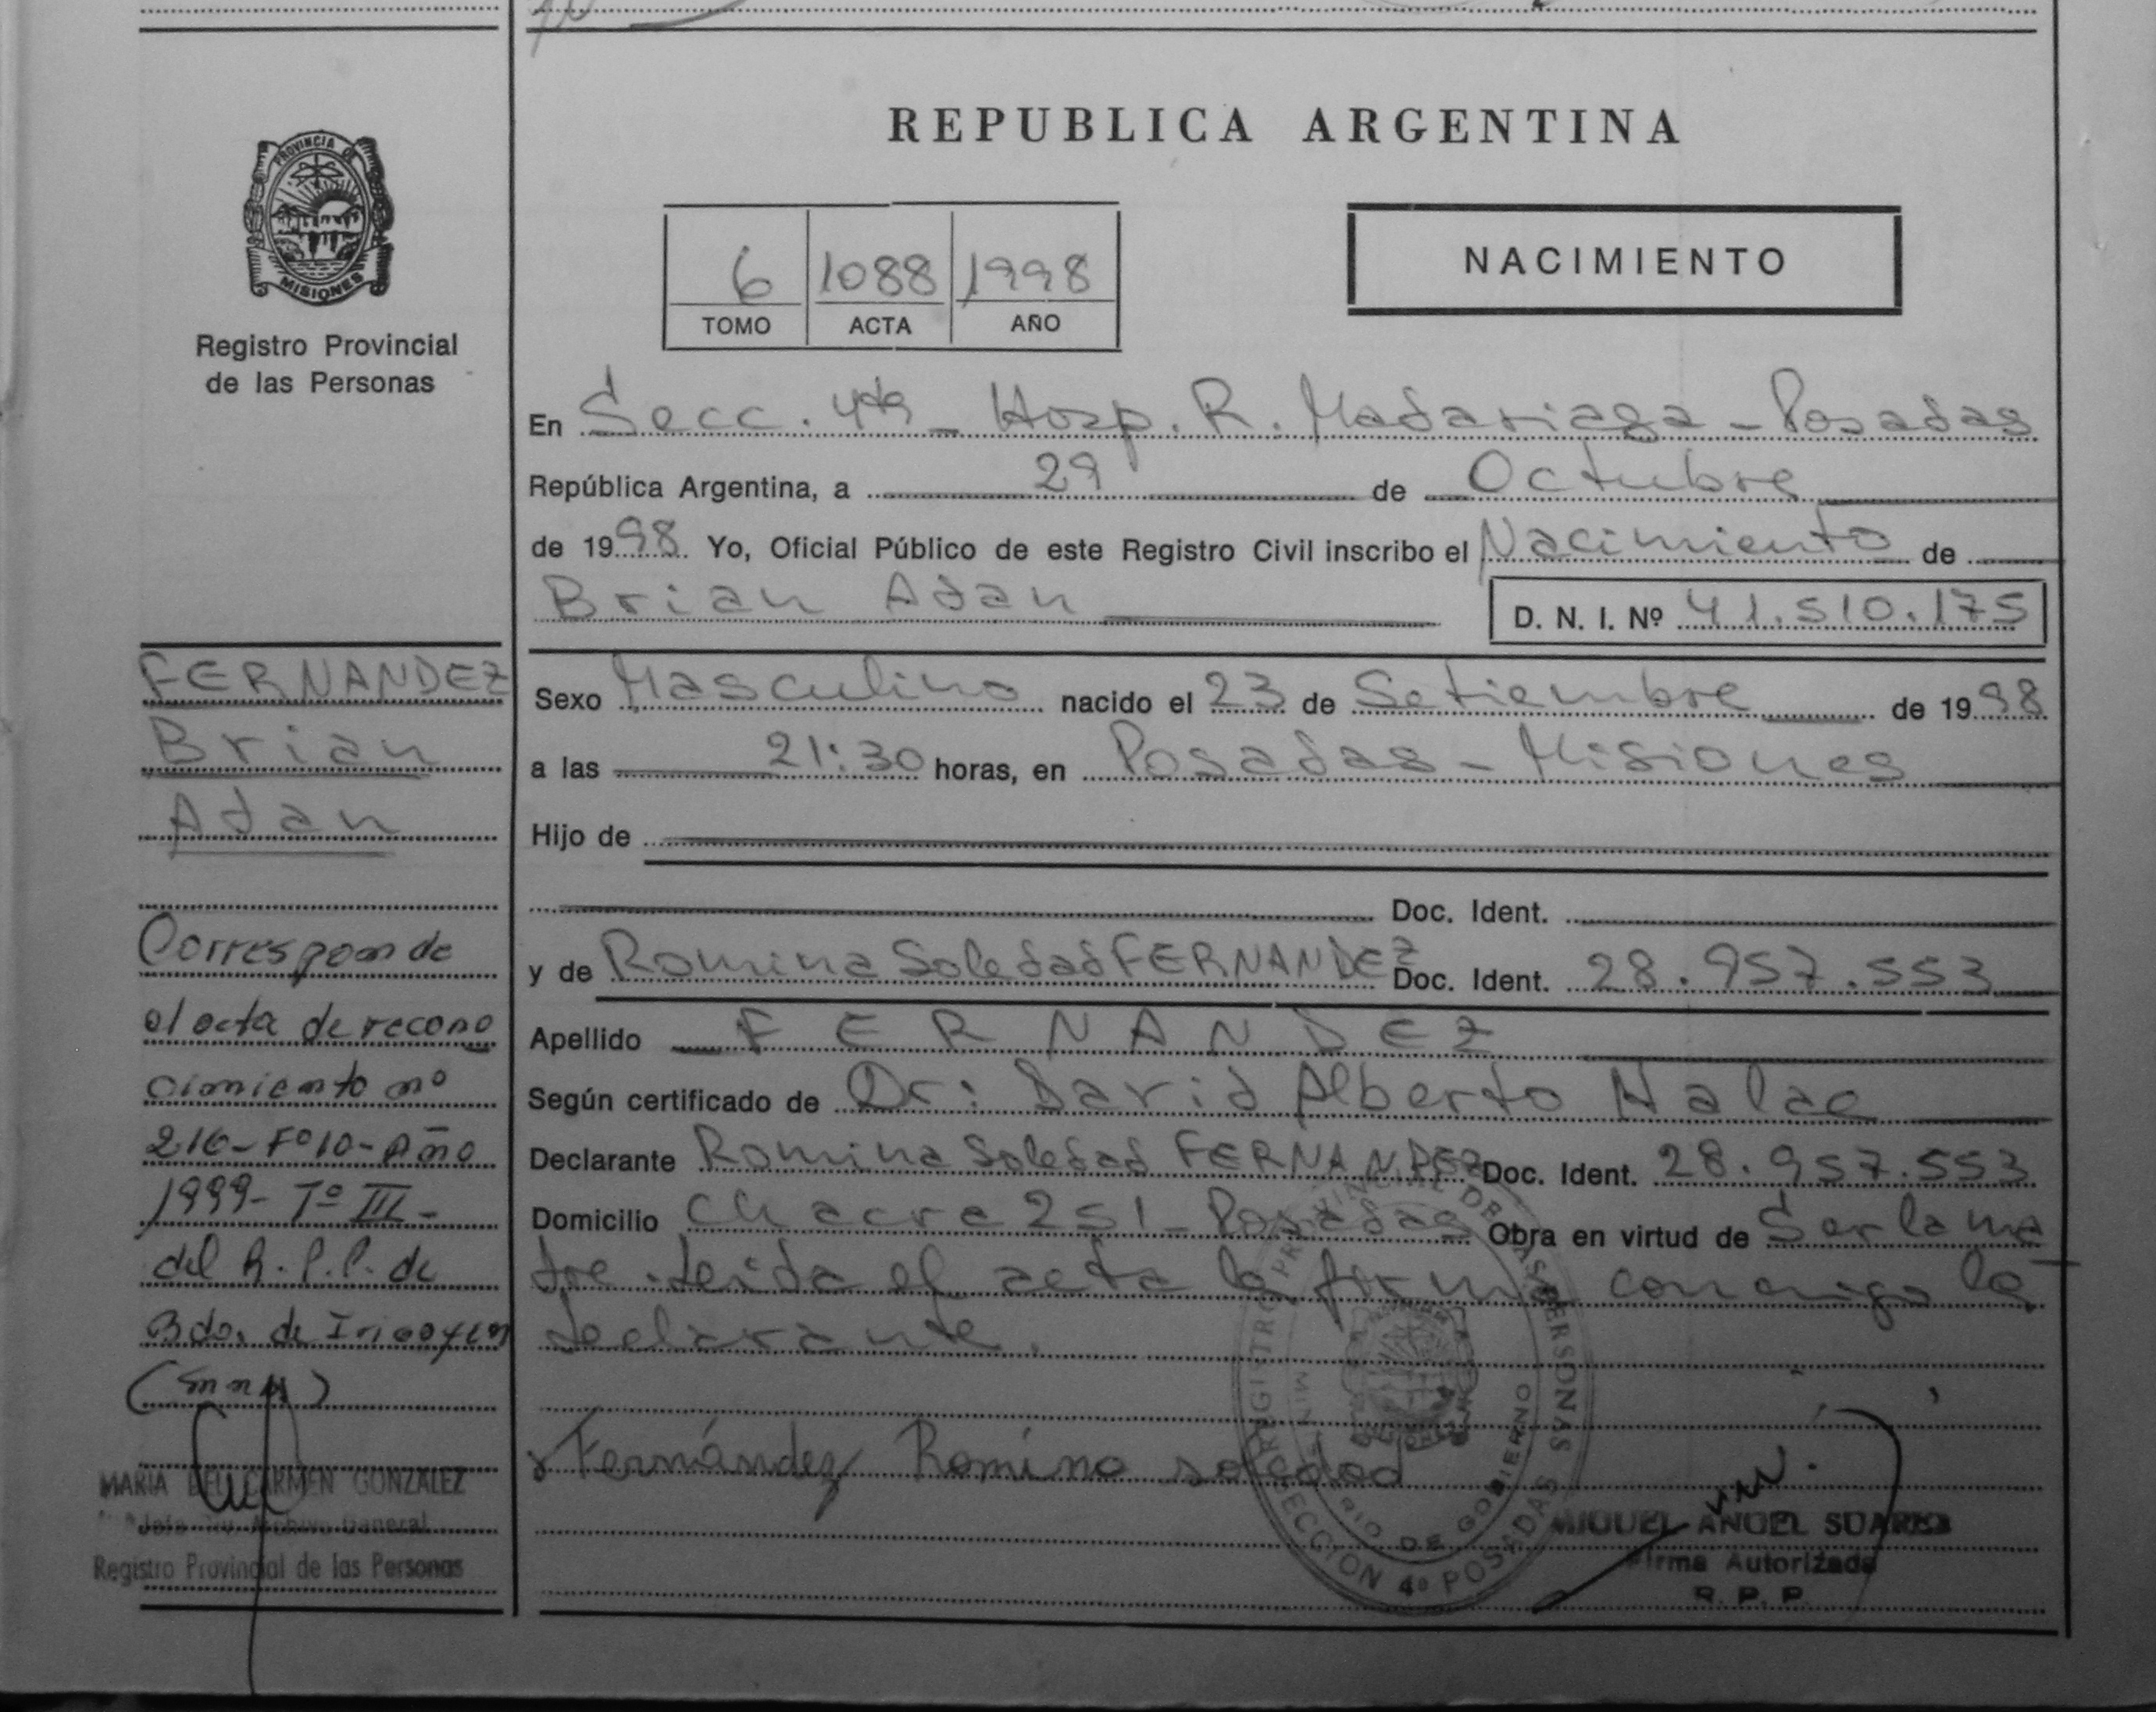 REPUBLICA ARGENTINA
PROVINCIA DE
MISIONES
Registro Provincial
de las Personas
6 1088 1998
TOMO ACTA AÑO
NACIMIENTO
En Secc. 4ta - Hosp. R. Madariaga - Posadas
República Argentina, a 29 de Octubre
de 1998 Yo, Oficial Público de este Registro Civil inscribo el Nacimiento de
Brian Adan D. N. I. Nº 41.510.175
Sexo Masculino nacido el 23 de Setiembre de 1998
a las 21:30 horas, en Posadas - Misiones
Hijo de
Doc. Ident.
y de Romina Soledad FERNANDEZ Doc. Ident. 28.957.553
Apellido FERNANDEZ
Según certificado de Dr: David Alberto
Declarante Romina Soledad FERNANDEZ Doc. Ident. 28.957.553
Domicilio Chacra 251 - Posadas Obra en virtud de Ser la ma
dre - leida el acta la firma conmigo la
declarante.
Fernández Romina soledad
MIGUEL ANGEL SUAREZ
Firma Autorizada
R. P. P.
REGISTRO PROVINCIAL DE LAS PERSONAS
MINISTERIO DE GOBIERNO
SECCION 4º POSADAS
FERNANDEZ
Brian
Adan
Corresponde
al acta de recono
cimiento nº
216 - Fº 10 - Año
1999 - Tº III -
del R. P. P. de
Bdo. de Irigoyen
(mng)
MARIA DEL CARMEN GONZALEZ
Jefe Archivo General
Registro Provincial de las Personas